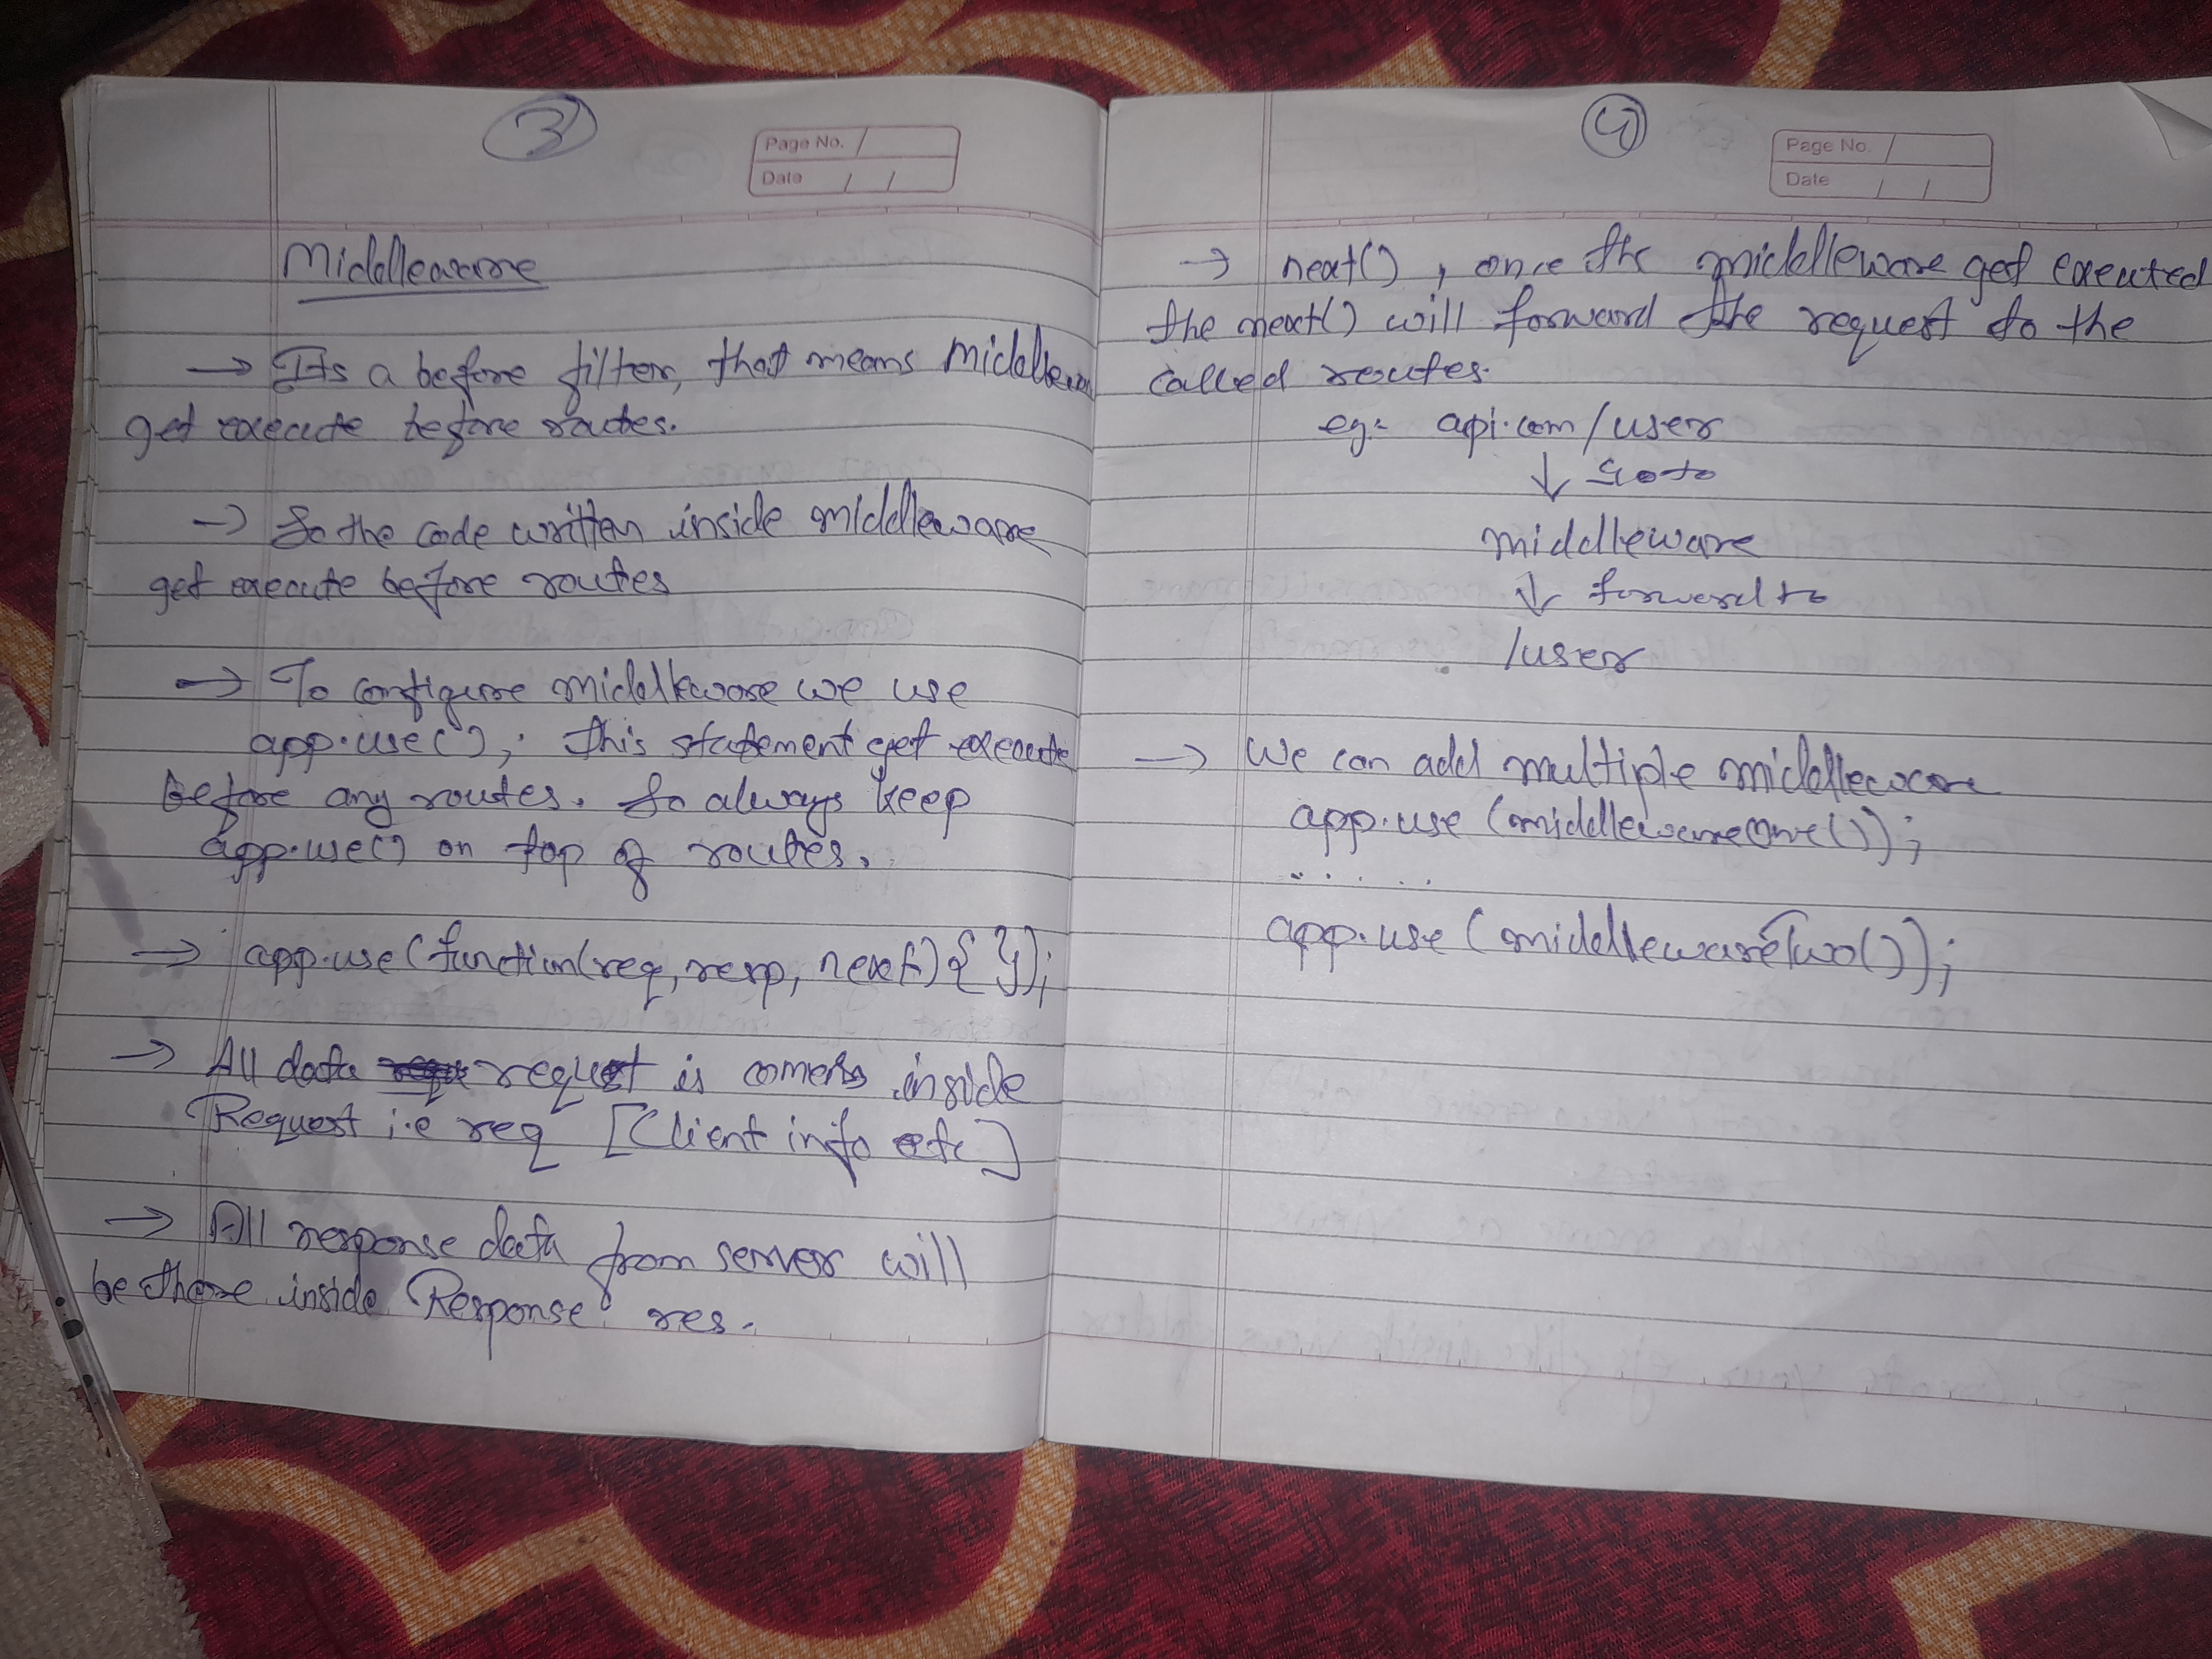 3
Page No.
Date / /
Middleware
→ Its a before filter, that means Middleware
get execute before routes.
→ So the code written inside middleware
get execute before routes
→ To configure middleware we use
app.use(); this statement get execute
before any routes. So always keep
app.use() on top of routes.
→ app.use(function(req, resp, next) { });
→ All data request is comes inside
Request i.e req [Client info etc]
→ All response data from server will
be there inside Response res.
4
Page No.
Date / /
→ next(), once the middleware get executed
the next() will forward the request to the
called routes.
eg:- api.com/user
↓ Go to
middleware
↓ forward to
/user
→ We can add multiple middleware
app.use (middlewareOne());
......
app.use (middlewareTwo());